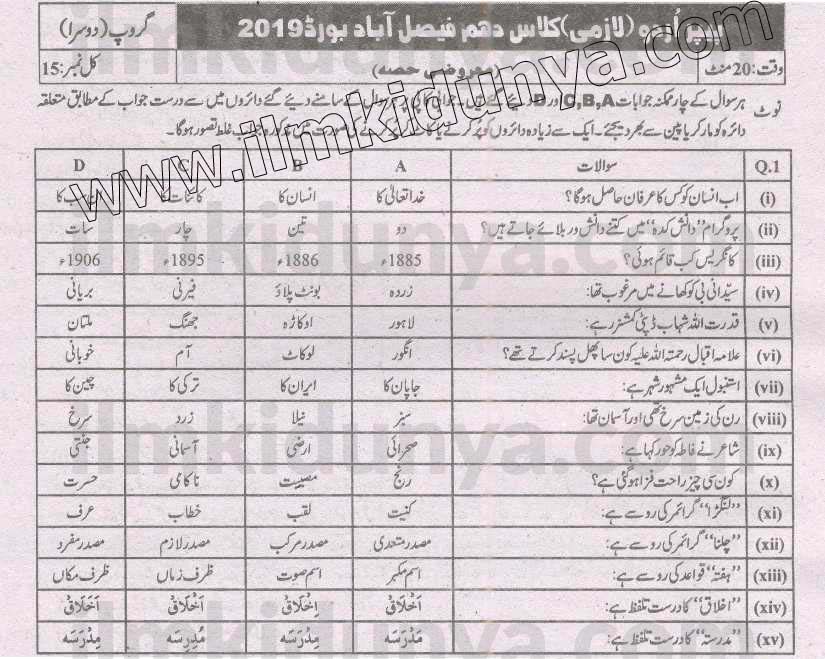 پیپر اُردو (لازمی) کلاس دہم فیصل آباد بورڈ 2019 گروپ (دوسرا)
وقت: 20 منٹ (معروضی حصہ) کل نمبر: 15
نوٹ ہر سوال کے چار ممکنہ جوابات C,B,A اور D دیئے گئے ہیں۔ جوابی کاپی پر ہر سوال کے سامنے دیئے گئے دائروں میں سے درست جواب کے مطابق متعلقہ
دائرہ کو مارکر یا پین سے بھر دیجئے۔ ایک سے زیادہ دائروں کو پُر کرنے یا کاٹ کر پُر کرنے کی صورت میں مذکورہ جواب غلط تصور ہوگا۔
Q.1 سوالات A B C D
(i) اب انسان کو کس کا عرفان حاصل ہوگا؟ خدا تعالیٰ کا انسان کا کائنات کا
(ii) پروگرام ”دانش کدہ“ میں کتنے دانش ور بلائے جاتے ہیں؟ دو تین چار سات
(iii) کانگریس کب قائم ہوئی؟ 1885ء 1886ء 1895ء 1906ء
(iv) سیّدانی بی کو کھانے میں مرغوب تھا: زردہ بونٹ پلاؤ فیرنی بریانی
(v) قدرت اللہ شہاب ڈپٹی کمشنر رہے: لاہور اوکاڑہ جھنگ ملتان
(vi) علامہ اقبال رحمتہ اللہ علیہ کون سا پھل پسند کرتے تھے؟ انگور لوکاٹ آم خوبانی
(vii) استنبول ایک مشہور شہر ہے: جاپان کا ایران کا ترکی کا چین کا
(viii) رن کی زمین سرخ تھی اور آسمان تھا: سبز نیلا زرد سرخ
(ix) شاعر نے فاطمہ کو حور کہا ہے: صحرائی ارضی آسمانی جنتی
(x) کون سی چیز راحت فزا ہو گئی ہے؟ رنج مصیبت ناکامی حسرت
(xi) ”لنگڑا“ گرائمر کی رو سے ہے: کنیت لقب خطاب عرف
(xii) ”چلنا“ گرائمر کی رو سے ہے: مصدر متعدی مصدر مرکب مصدر لازم مصدر مفرد
(xiii) ”ہفتہ“ قواعد کی رو سے ہے: اسم مکبر اسم صوت ظرف زماں ظرف مکاں
(xiv) ”اخلاق“ کا درست تلفظ ہے: اَخلَاقُ اِخلَاقُ اَخلَاقُ اَخلَاقُ
(xv) ”مدرستہ“ کا درست تلفظ ہے: مَدْرَسَه مِدْرَسَه مُدْرِسَه مِدْرَسَه
www.ilmkidunya.com
ilmkidunya.com
ilmkidunya.com
ilmkidunya.com